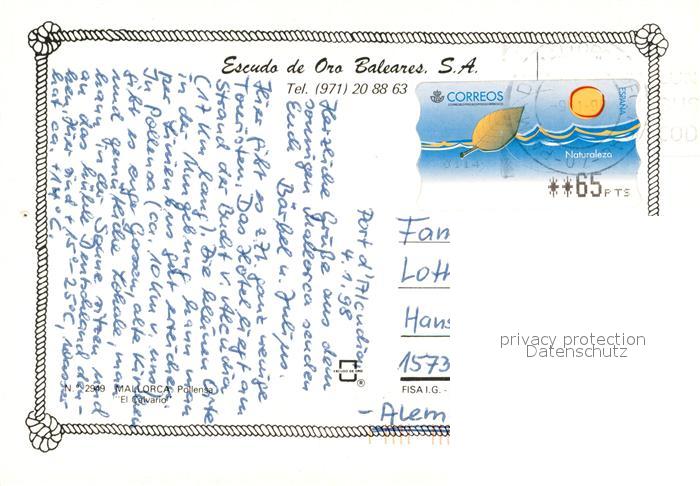 Escudo de Oro Baleares, S.A.
Tel. (971) 20 88 63
CORREOS
ESPAÑA
Naturaleza
**65 PTS
Port d'Alcudia
4.1.98
Herzliche Grüße aus dem
sonnigen Mallorca senden
Euch
Bärbel u. Julius.
Hier gibt es z.Zt. ganz wenige
Touristen. Das Hotel liegt am
Strand der Bucht v. Alcudia
(17 km lang). Die kleinen Orte
in der Umgebung kann man
per Linienbus gut erreichen.
In Pollensa (ca. 10 km v. uns)
gibt es enge Gassen, alte Kirchen
und gemütliche Lokale, man
kann in der Sonne sitzen und
an das kühle Deutschland den-
ken, hier sind + 15°-25°C, Wasser
hat ca. +14°C.
Fam
Lott
Hans
1573
- Alem
N. 2949 MALLORCA Pollensa
"El Calvario"
ESCUDO DE ORO
®
FISA I.G. -
privacy protection
Datenschutz